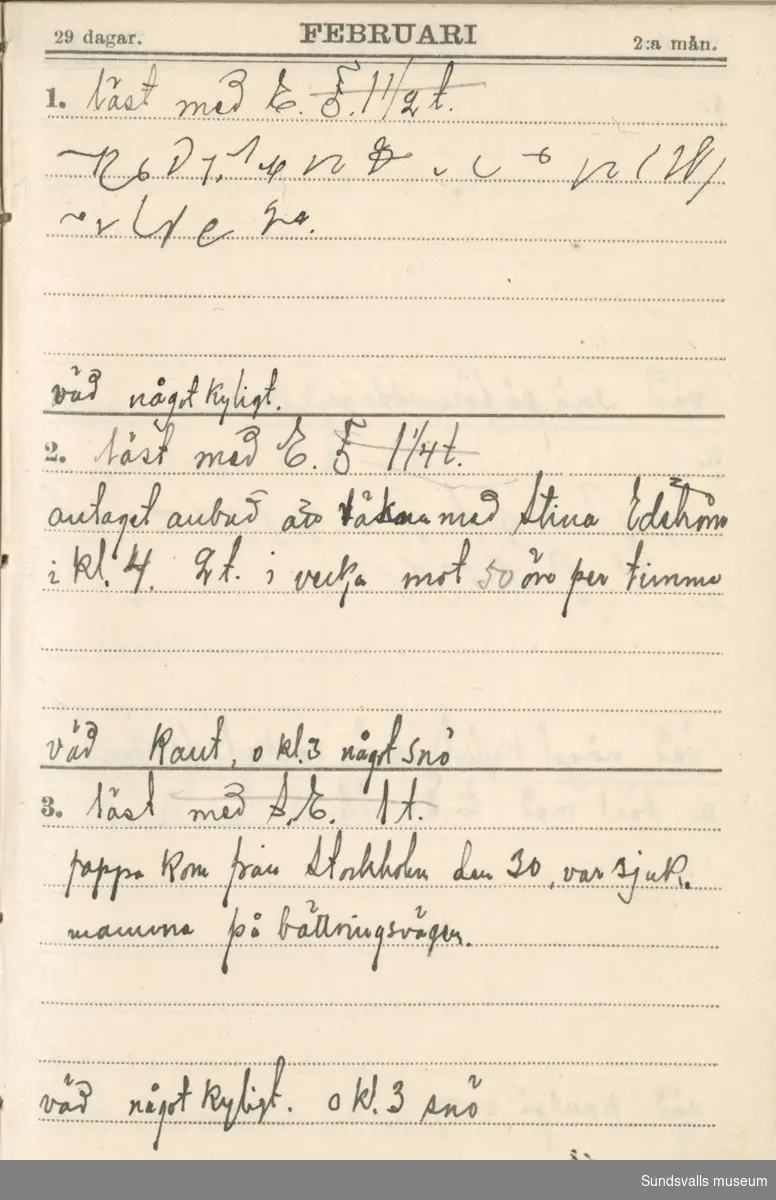 29 dagar. FEBRUARI 2:a mån.
1. läst med E. F. 1 1/2 t.
väd något kyligt.
2. läst med E. F 1 1/4 t.
antaget anbud att räkna med Stina Edström
i kl. 4. 2 t. i vecka mot 50 öre per timma
väd kallt, o kl. 3 något snö
3. läst med S.E. 1 t.
pappa kom från Stockholm den 30, var sjuk.
mamma på bättringsvägen.
väd något kyligt. o kl. 3 snö
Sundsvalls museum